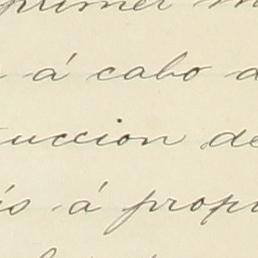 primer
á cabo
uccion de
ís á prop